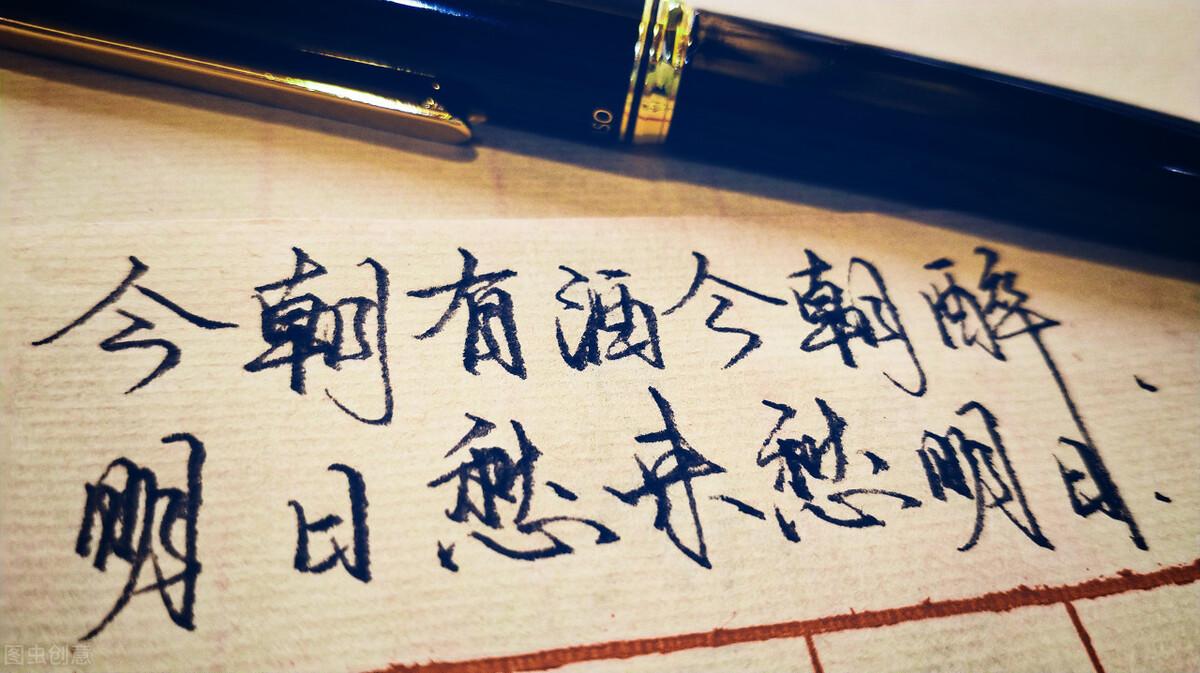 SO
今朝有酒今朝醉、
明日愁来愁明日.
图虫创意